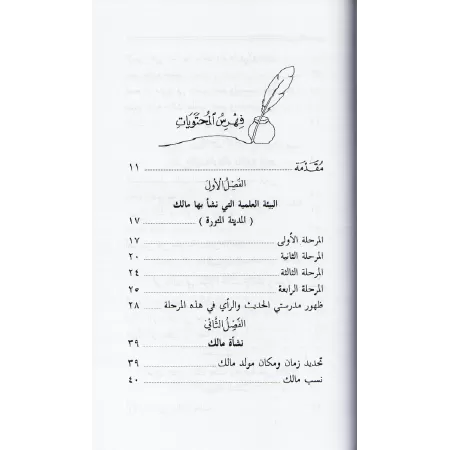 فِهْرِسُ المُحْتَوَيَاتِ
مُقَدِّمَة ١١
الفَصْلُ الأوَل
البيئة العلمية التي نشأ بها مالك
( المدينة المنورة ) ١٧
المرحلة الأولى ١٧
المرحلة الثانية ٢٠
المرحلة الثالثة ٢٤
المرحلة الرابعة ٢٥
ظهور مدرستي الحديث والرأي في هذه المرحلة ٢٨
الفَصْلُ الثَّاني
نشأة مالك ٣٩
تحديد زمان ومكان مولد مالك ٣٩
نسب مالك ٤٠